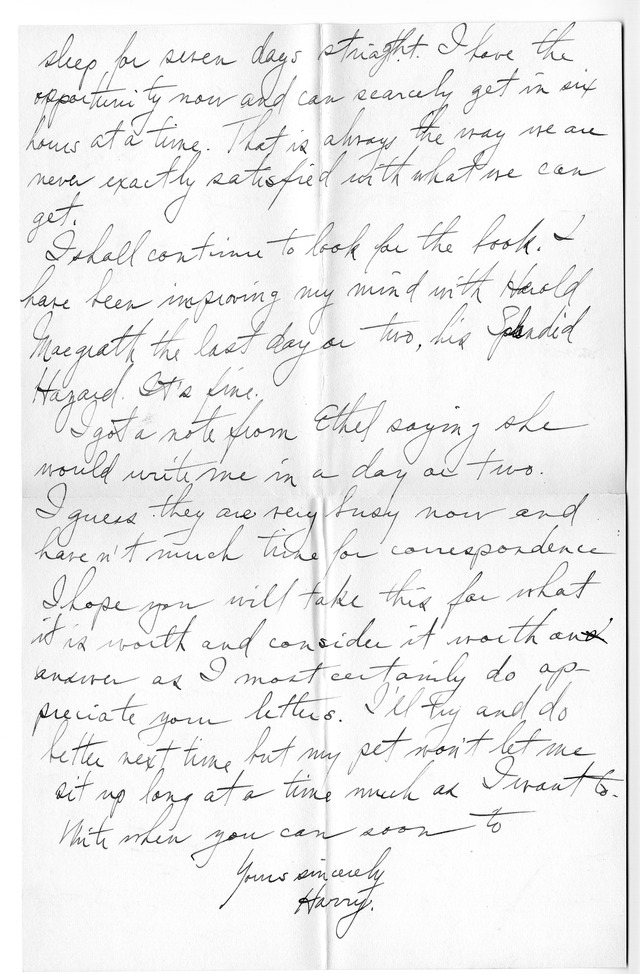 sleep for seven days straight. I have the
opportunity now and can scarcely get in six
hours at a time. That is always the way we are
never exactly satisfied with what we can
get.
I shall continue to look for the book. I
have been improving my mind with Harold
Macgrath the last day or two, his Splendid
Hazard. It's fine.
I got a note from Ethel saying she
would write me in a day or two.
I guess they are very busy now and
haven't much time for correspondence
I hope you will take this for what
it is worth and consider it worth an
answer as I most certainly do ap-
preciate your letters. I'll try and do
better next time but my pet won't let me
sit up long at a time much as I want to.
Write when you can soon to
Yours sincerely
Harry.